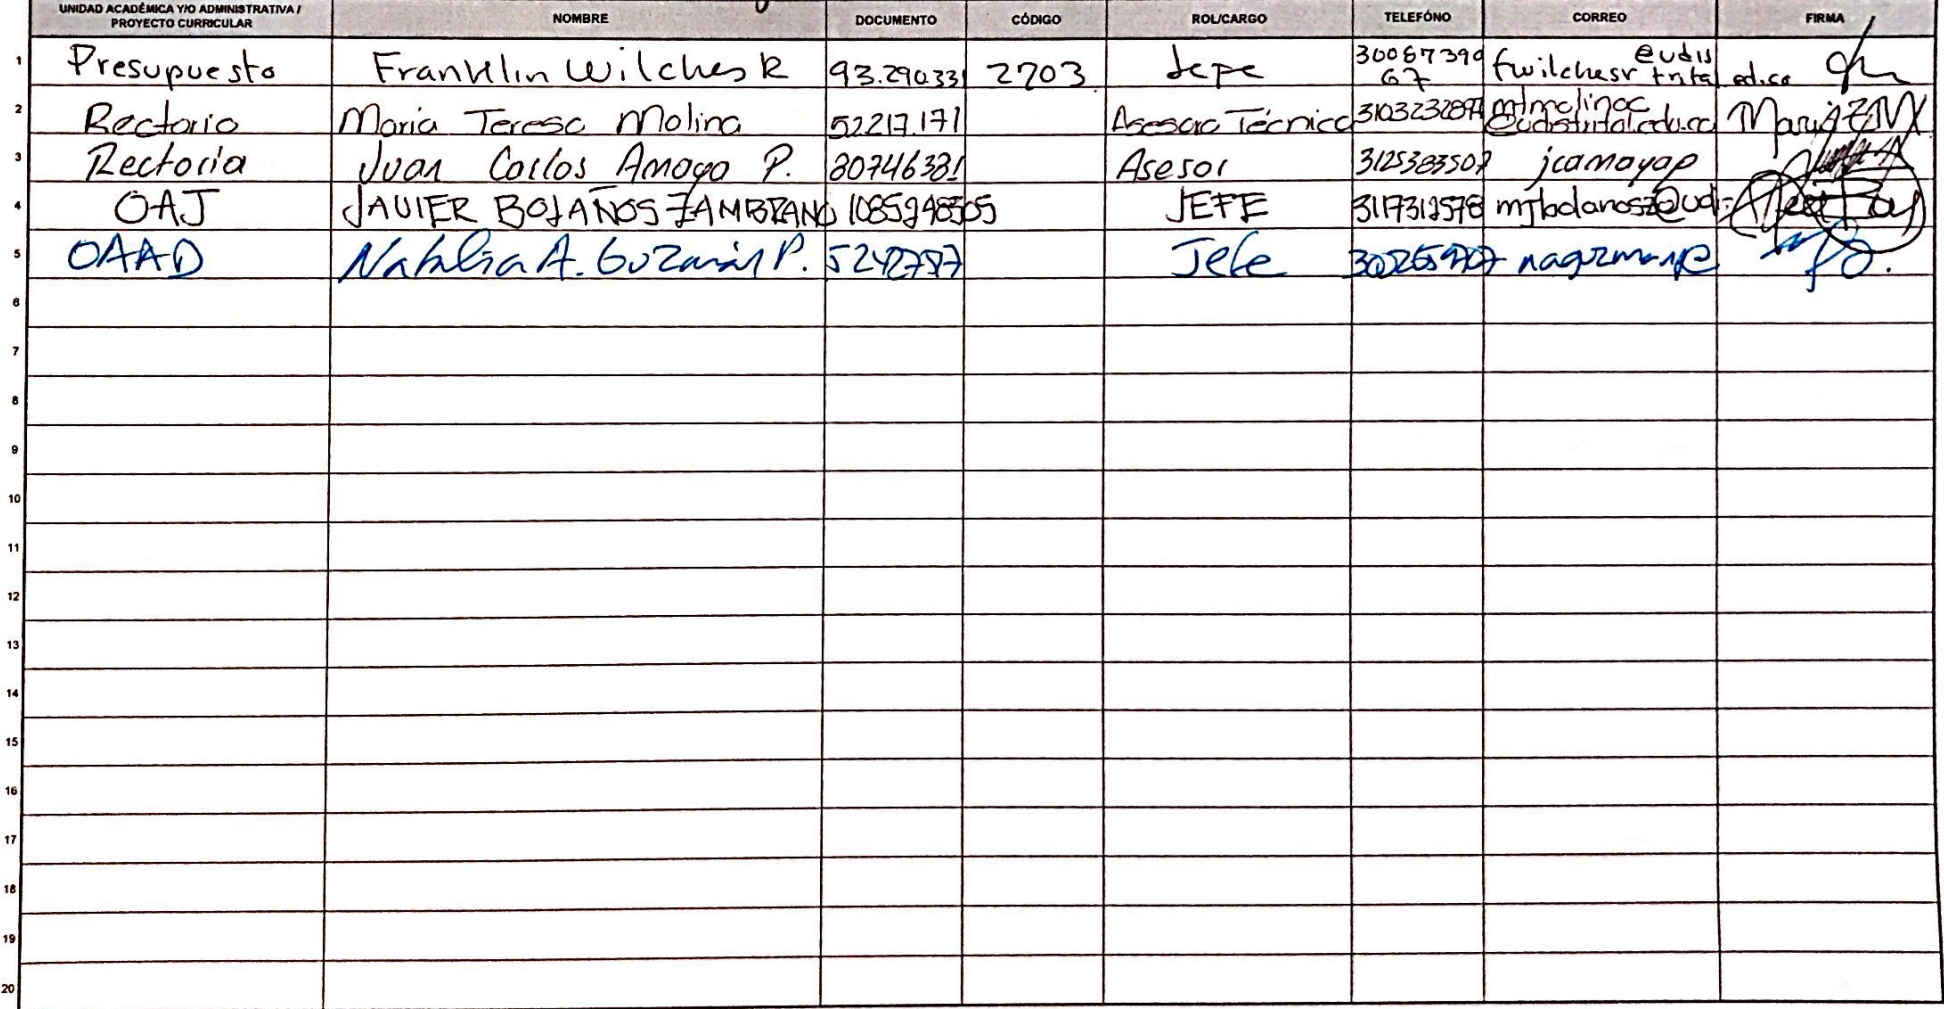 UNIDAD ACADÉMICA Y/O ADMINISTRATIVA / PROYECTO CURRICULAR NOMBRE DOCUMENTO CÓDIGO ROL/CARGO TELEFÓNO CORREO FIRMA
1 Presupuesto Franklin Wilches R 93.290.331 2703 Jefe 3006739967 fwilchesr @udistrital.ed.co
2 Rectoria Maria Teresa Molina 52217.171 Asesora Técnica 3103232897 mtmolinac @udistrital.edu.co
3 Rectoría Juan Carlos Amaya P. 80746381 Asesor 3125383507 jcamayap
4 OAJ JAVIER BOLAÑOS ZAMBRANO 1085248505 JEFE 3117312578 mjbolanosz@udi-
5 OAAD Natalia A. Guzmán P. Jefe
6
7
8
9
10
11
12
13
14
15
16
17
18
19
20